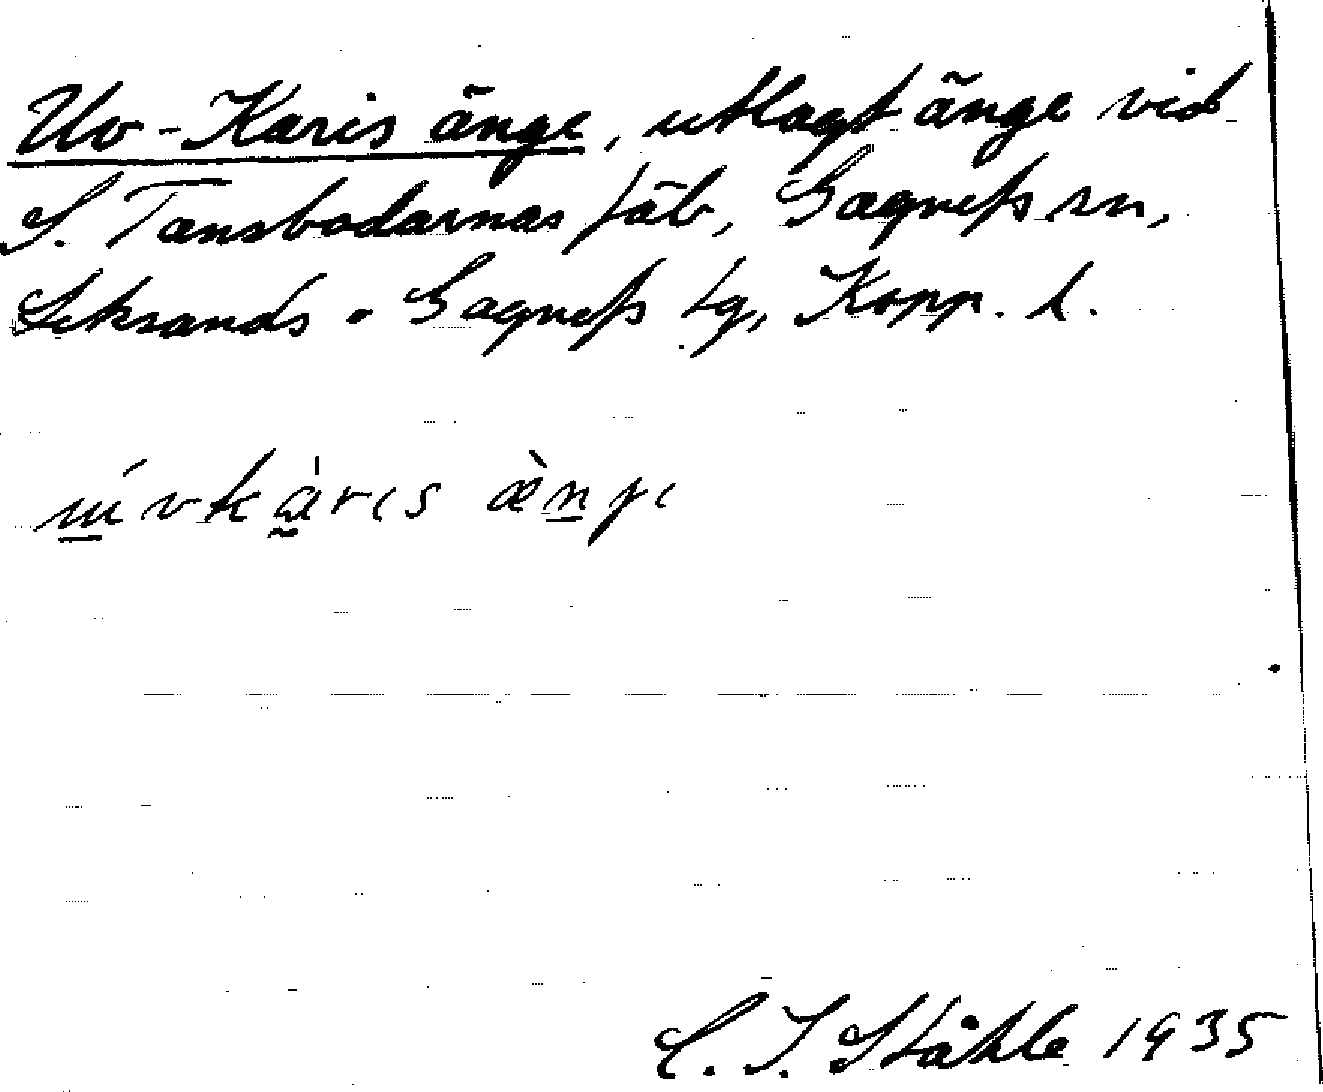 Uv-Karis änge, utlagt änge vid
S. Tansbodarnas fäb, Gagnefs sn,
Leksands o Gagnefs tg, Kopp. l.
ɯ́vkàris æ̀nɟi
C. I. Ståhle 1935